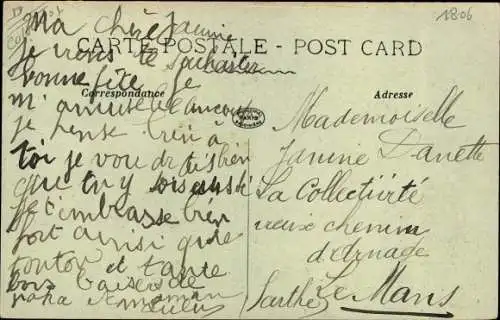 Ma chère Janine
CARTE POSTALE - POST CARD
je viens te souhaiter
bonne fête je
Correspondance
m'amuse
je pense bien à
toi je voudrais bien
que tu y sois aussi
je t'embrasse bien
fort ainsi que
tonton et tante
bons baisers de
papa et maman
1806
Adresse
Mademoiselle
Janine Danette
La Collectivité
vieux chemin
d'Arnage
Le Mans
Sarthe